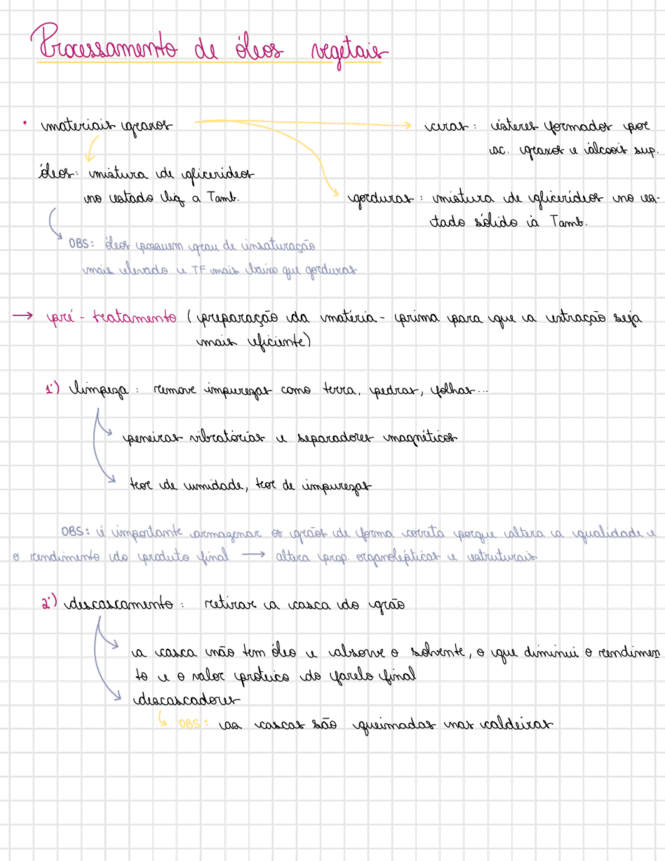 Processamento de óleos vegetais
• materiais graxos → ceras: ésteres formados por
ac. graxos e álcoois sup.
óleos: mistura de glicerídeos
no estado líq a Tamb.
gorduras: mistura de glicerídeos no es-
tado sólido à Tamb.
OBS: óleos possuem grau de insaturação
mais elevado e TF mais baixo que gorduras
→ pré-tratamento (preparação da matéria-prima para que a extração seja
mais eficiente)
1º) limpeza: remove impurezas como terra, pedras, folhas...
peneiras vibratórias e separadores magnéticos
teor de umidade, teor de impurezas
OBS: é importante armazenar os grãos de forma correta porque altera a qualidade e
o rendimento do produto final → altera prop. organolépticas e estruturais
2º) descascamento: retirar a casca do grão
a casca não tem óleo e absorve o solvente, o que diminui o rendimen
to e o valor proteico do farelo final
descascadores
OBS: as cascas são queimadas nas caldeiras